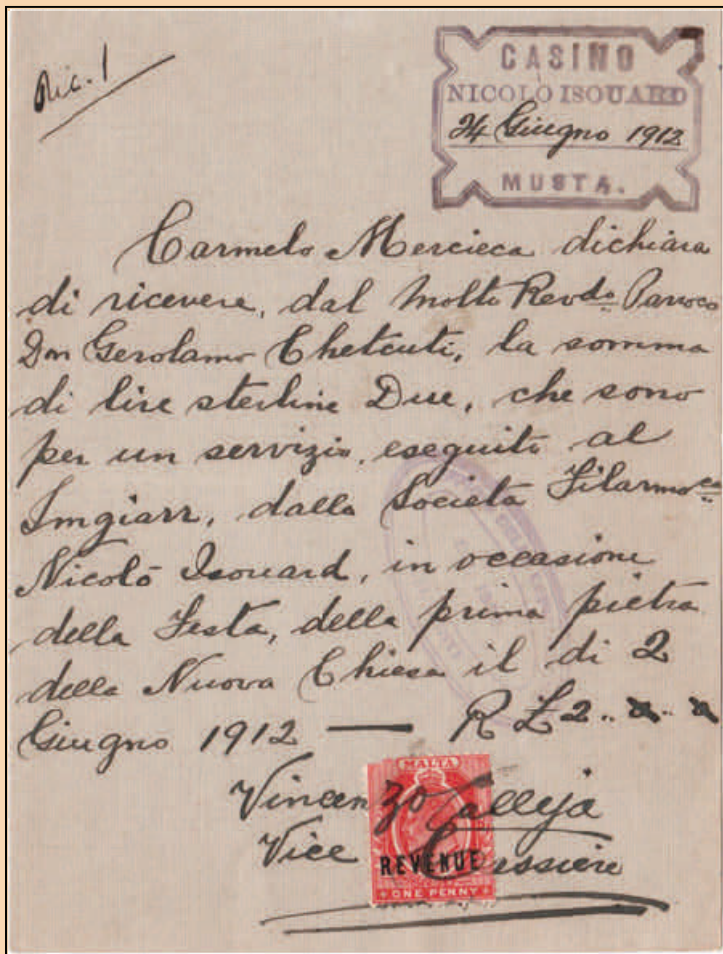 Ric. 1
CASINO
NICOLÒ ISOUARD
24 Giugno 1912
MUSTA.
Carmelo Mercieca dichiara
di ricevere, dal Molto Revdo. Parroco
Don Gerolamo Chetcuti, la somma
di lire sterline Due, che sono
per un servizio, eseguito al
Imgiarr, dalla Società Filarmoca.
Nicolò Isouard, in occasione
della Festa, della prima pietra
della Nuova Chiesa il di 2
Giugno 1912 — R £2.. x.. x
Vincenzo Calleja
Vice Cassiere
MALTA
REVENUE
ONE PENNY